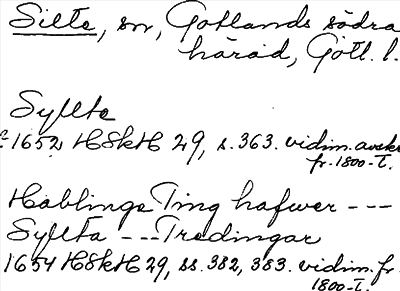 Silte, sn, Gotlands södra
härad, Gotl. l.
Syllte
1652 HSkH 29, s. 363. vidim. avskr
fr. 1800-t.
Hablinge Ting hafwer ---
Syllta --- Tredingar
1654 HSkH 29, ss. 382, 383. vidim. fr.
1800-t.